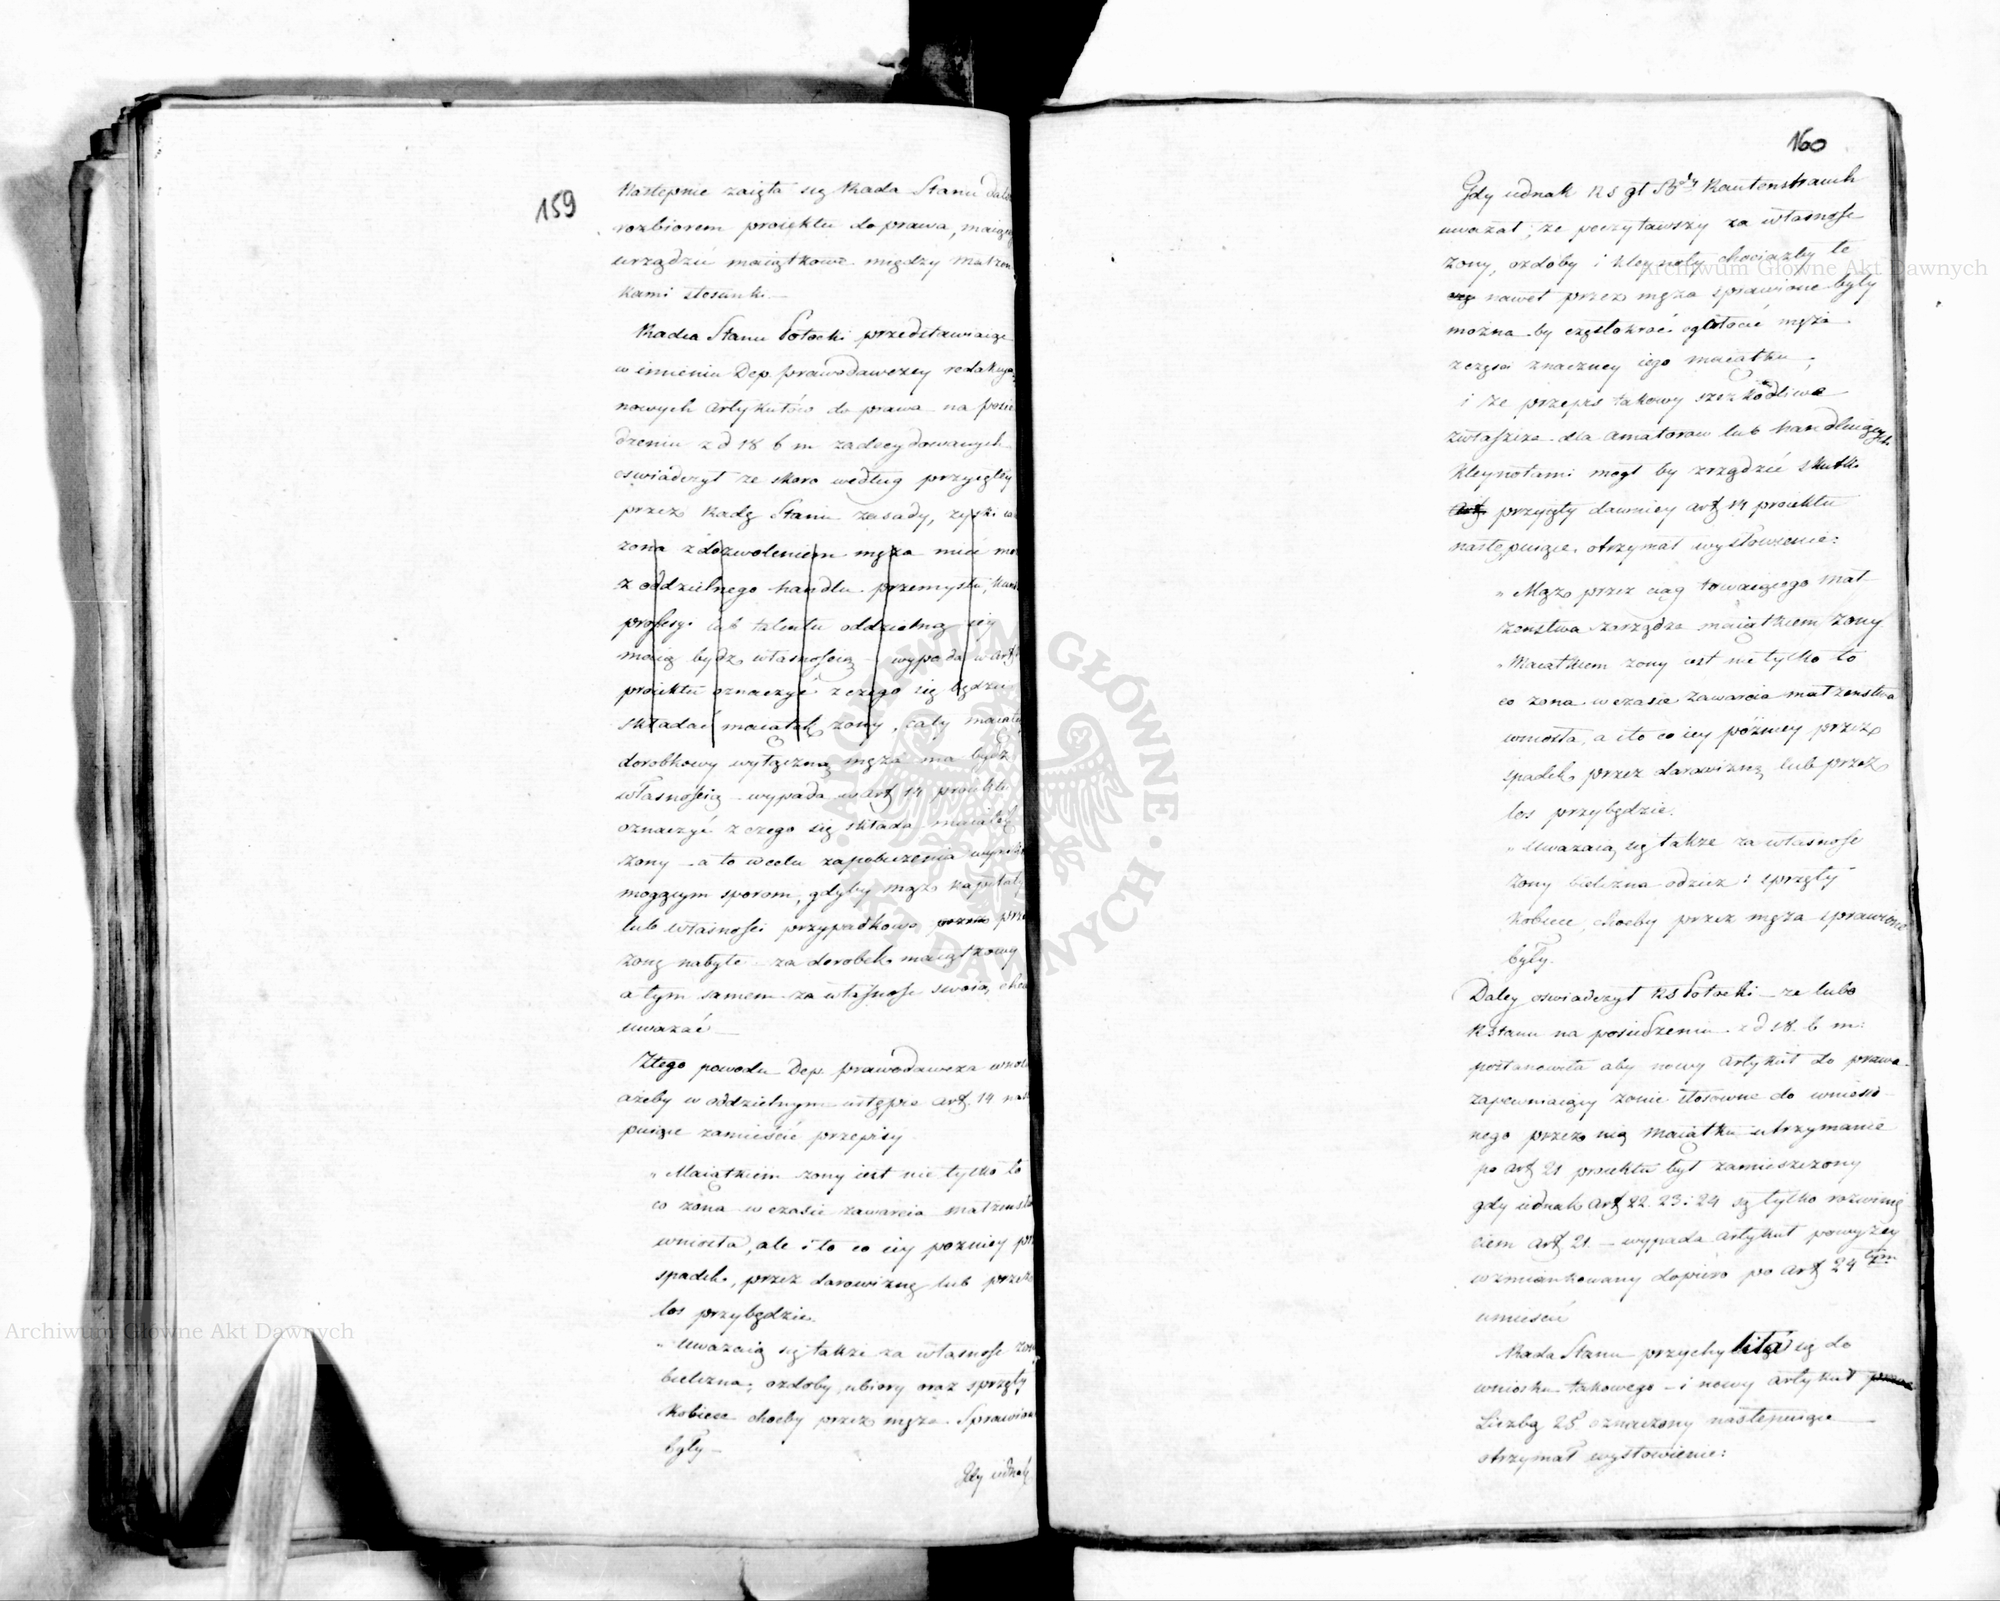 159
Następnie zaięła się Rada Stanu
rozbiorem proiektu do prawa, maiącego
urządzić maiątkowe między Małżon
kami stosunki. —
Radca Stanu Potocki przedstawiaiąc
w imieniu Dep. prawodawczey redakcyą
nowych artykułów do prawa na posie
dzeniu z d 18 b m zadecydowanych
oswiadczył że skoro według przyiętey
przez Radę Stanu zasady, zyski
zona z dozwoleniem męża mieć
z oddzielnego handlu przemysłu,
professyi lub talentu oddzielną iey
maią bydz własnością — wypada w art
proiektu oznaczyć z czego się będzie
składać maiątek żony, cały maiątek
dorobkowy wyłączną męża ma bydz
własnością — wypada w art 14 proiektu
oznaczyć z czego się składa maiątek
żony — a to w celu zapobieżenia
mogącym sporom, gdyby mąż kapitały
lub własności przypadkowo
żonę nabyte za dorobek maiątkowy
a tym samem za własność swoią
uważać —
Z tego powodu Dep. prawodawcza wnosi
ażeby w oddzielnym ustępie art. 14 nas
puiące zamieścić przepisy
„Maiątkiem żony iest nie tylko to
co żona w czasie zawarcia małżeństwa
wniosła, ale i to co iey pozniey
spadek, przez darowiznę lub przez
los przybędzie.
„Uważaią się także za własność żony
bielizna, ozdoby, ubiory oraz sprzęty
kobiece choćby przez męża sprawione
były —
Gdy iednak
160
Gdy iednak RS gł Bdy Rautenstrauch
uważał, że poczytawszy za własność
żony, ozdoby i kleynoty chociażby te
nawet przez męża sprawione były
można by częstokroć ogołocić męża
z części znaczney iego maiątku;
i że przepis takowy szczególnie
zwłaszcza dla amatorow lub handluiących
kleynotami mogł by zrządzić skutki
przyięty dawniey art 14 proiektu
następuiące otrzymał wysłowienie:
„Mąż przez ciąg trwaiącego mał-
żenstwa zarządza maiątkiem żony
„Maiątkiem żony iest nie tylko to
co żona w czasie zawarcia małżeństwa
wniosła, a i to co iey pózniey przez
spadek, przez darowiznę lub przez
los przybędzie.
„Uważaią się także za własność
żony bielizna odzież i sprzęty
kobiece, choćby przez męża sprawione
były.
Daley oswiadczył RS Potocki — że lubo
R Stanu na posiedzeniu z d 18. b m:
postanowiła aby nowy artykuł do prawa
zapewniaiący żonie stosowne do wniesio-
nego przez nią maiątku utrzymanie
po art 21 proiektu był zamieszczony
gdy iednak art 22. 23 i 24 są tylko rozwinię
ciem art 21. — wypada artykuł powyżey
wzmiankowany dopiero po art 24 tym
umieścić
Rada Stanu przychyliła się do
wniosku takowego — i nowy artykuł
Liczbą 25 oznaczony następuiące
otrzymał wysłowienie:
Archiwum Główne Akt Dawnych
Archiwum Główne Akt Dawnych
ARCHIWUM GŁÓWNE · AKT DAWNYCH ·